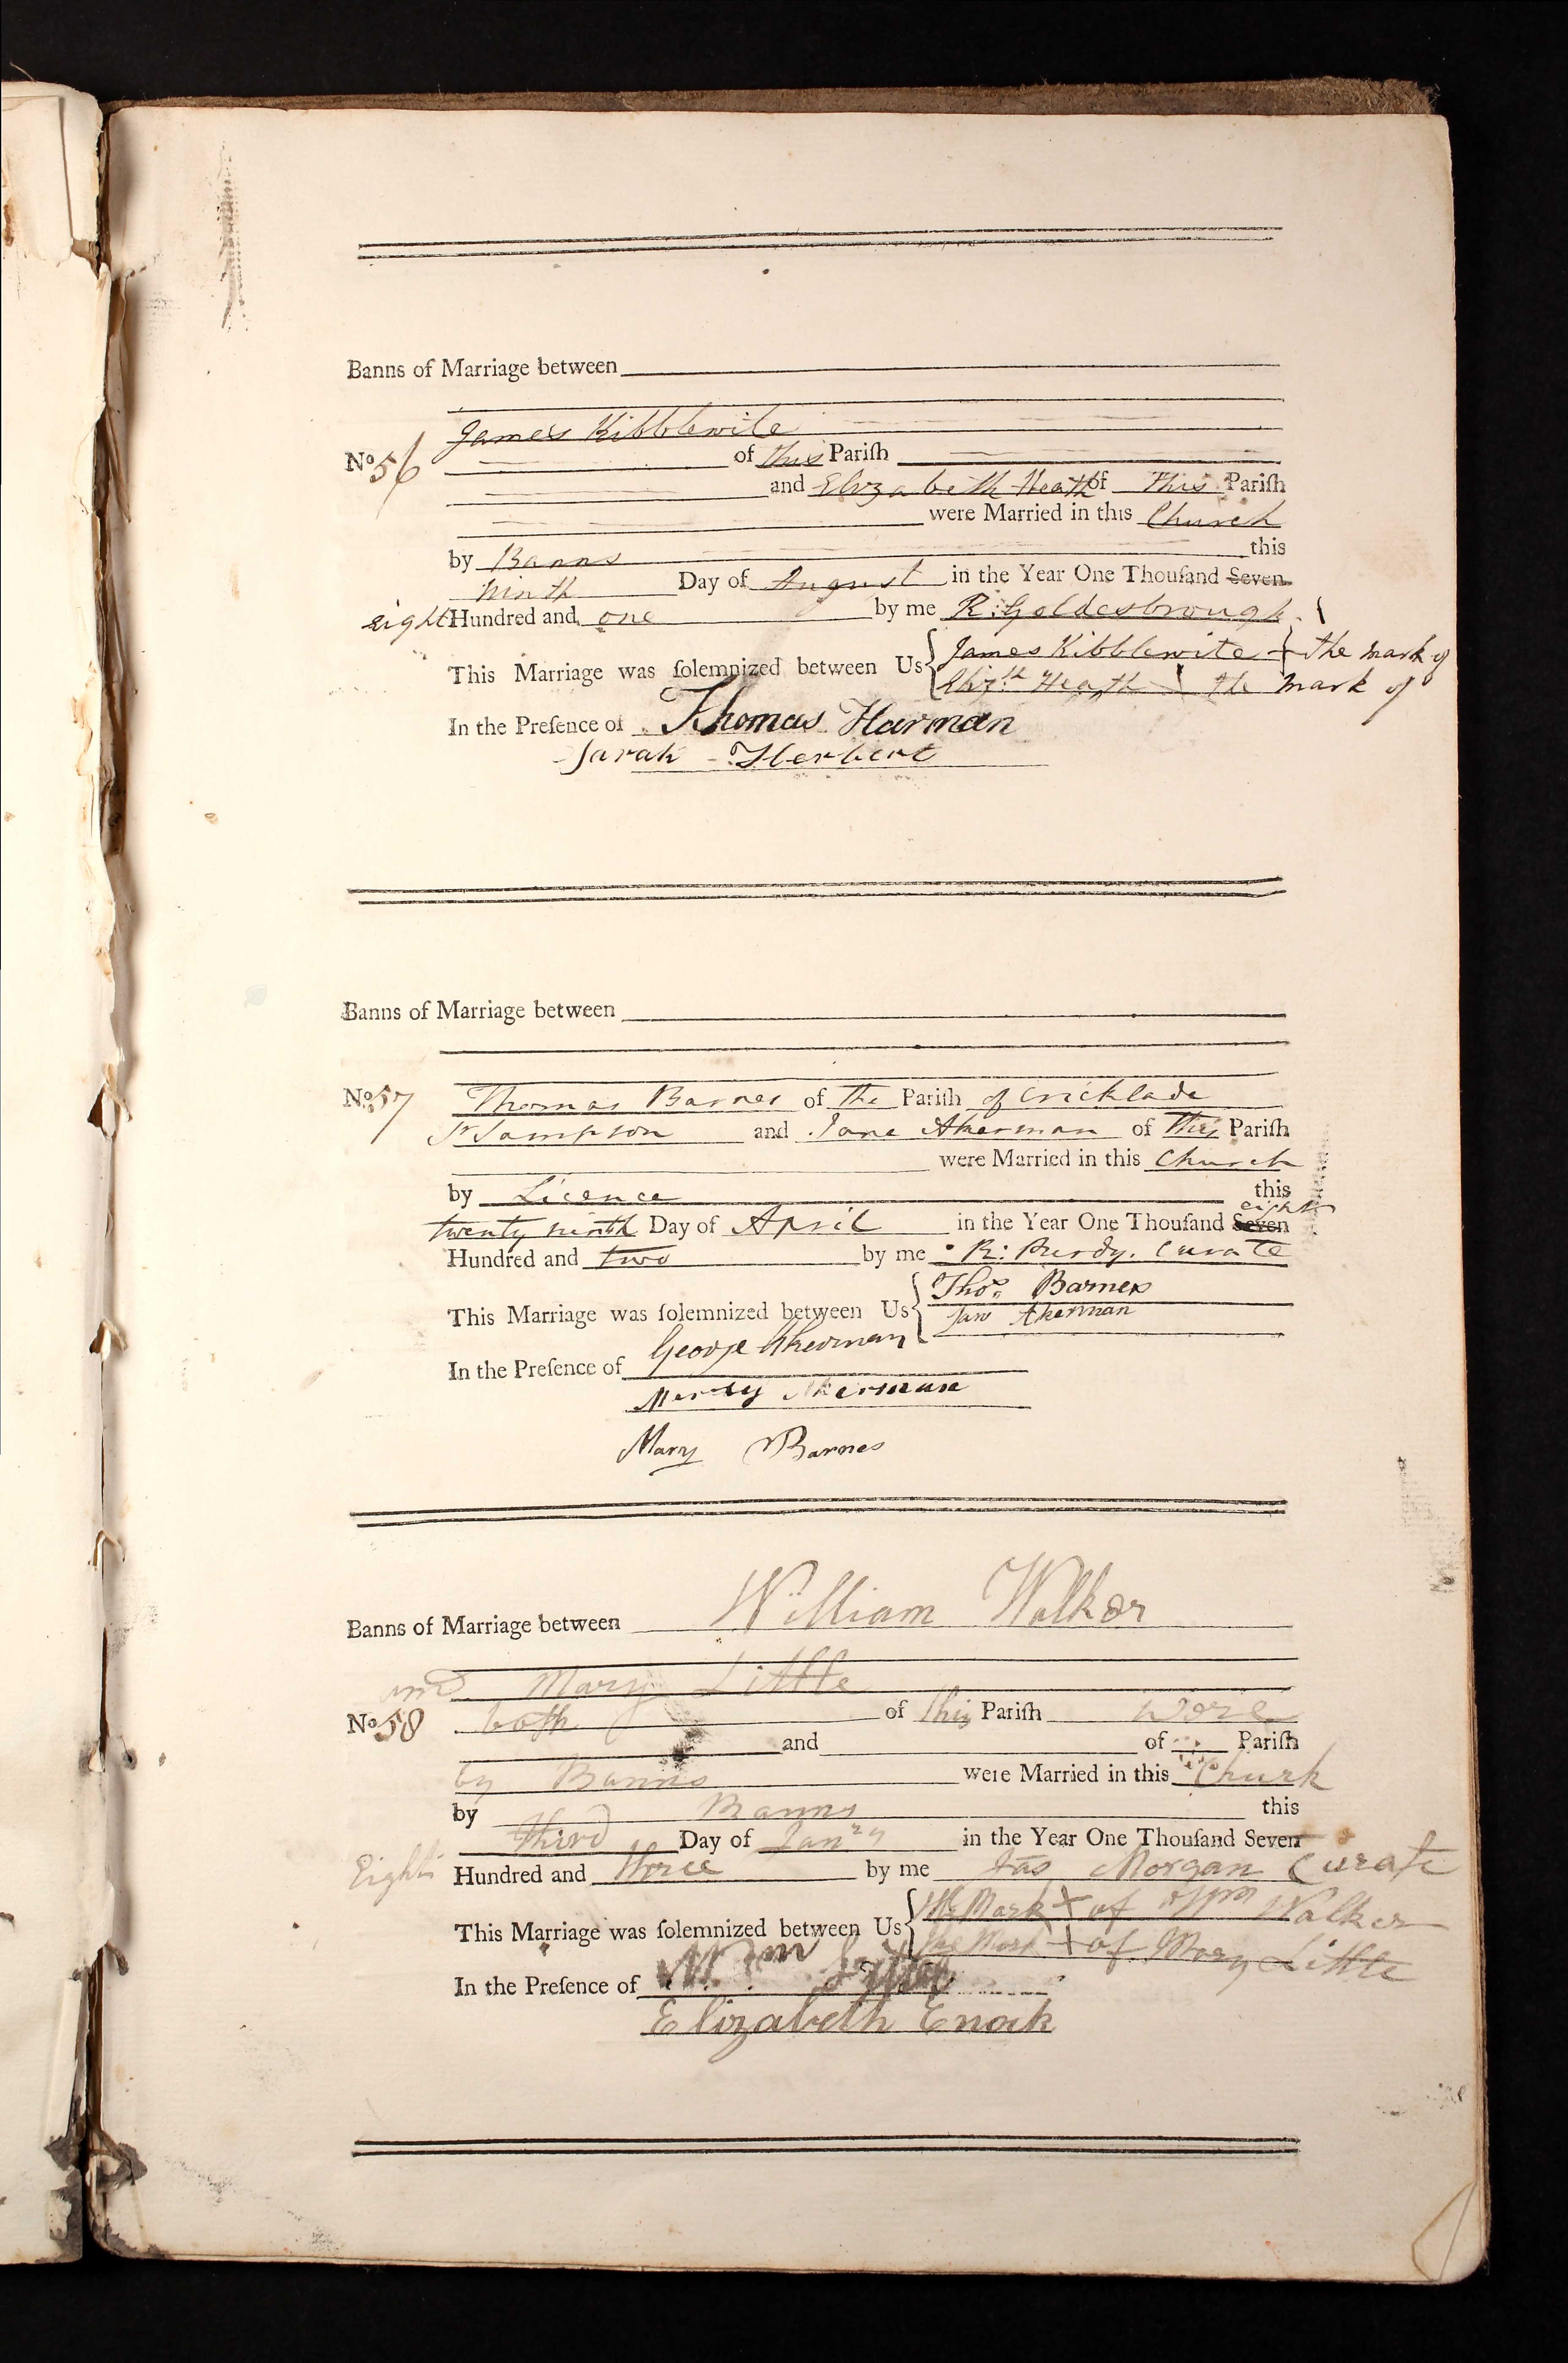 Banns of Marriage between
James Kibblewite
No 56 of this Pariſh
and Elizabeth Heath of This Pariſh
were Married in this Church
by Banns this
Ninth Day of August in the Year One Thouſand Seven
eight Hundred and one by me R: Goldesbrough
This Marriage was ſolemnized between Us James Kibblewite + the mark of
Eliz.th Heath \ the mark of
In the Preſence of Thomas Harman
Sarah Herbert
Banns of Marriage between
No 57 Thomas Barnes of the Pariſh of Cricklade
St Sampson and Jane Akerman of this Pariſh
were Married in this Church
by Licence this
eight
twenty ninth Day of April in the Year One Thouſand Seven
Hundred and two by me R: Purdy. Curate
This Marriage was ſolemnized between Us Thos. Barnes
Jane Akerman
In the Preſence of George Akerman
Akerman
Mary Barnes
Banns of Marriage between William Walker
and Mary Little
No 58 both of this Pariſh were
and of Pariſh
by Banns were Married in this Church
by Banns this
third Day of Janry in the Year One Thouſand Seven
Eight Hundred and three by me Jas Morgan Curate
This Marriage was ſolemnized between Us The Mark + of Wm Walker
The Mark + of Mary Little
In the Preſence of Wm
Elizabeth Enock